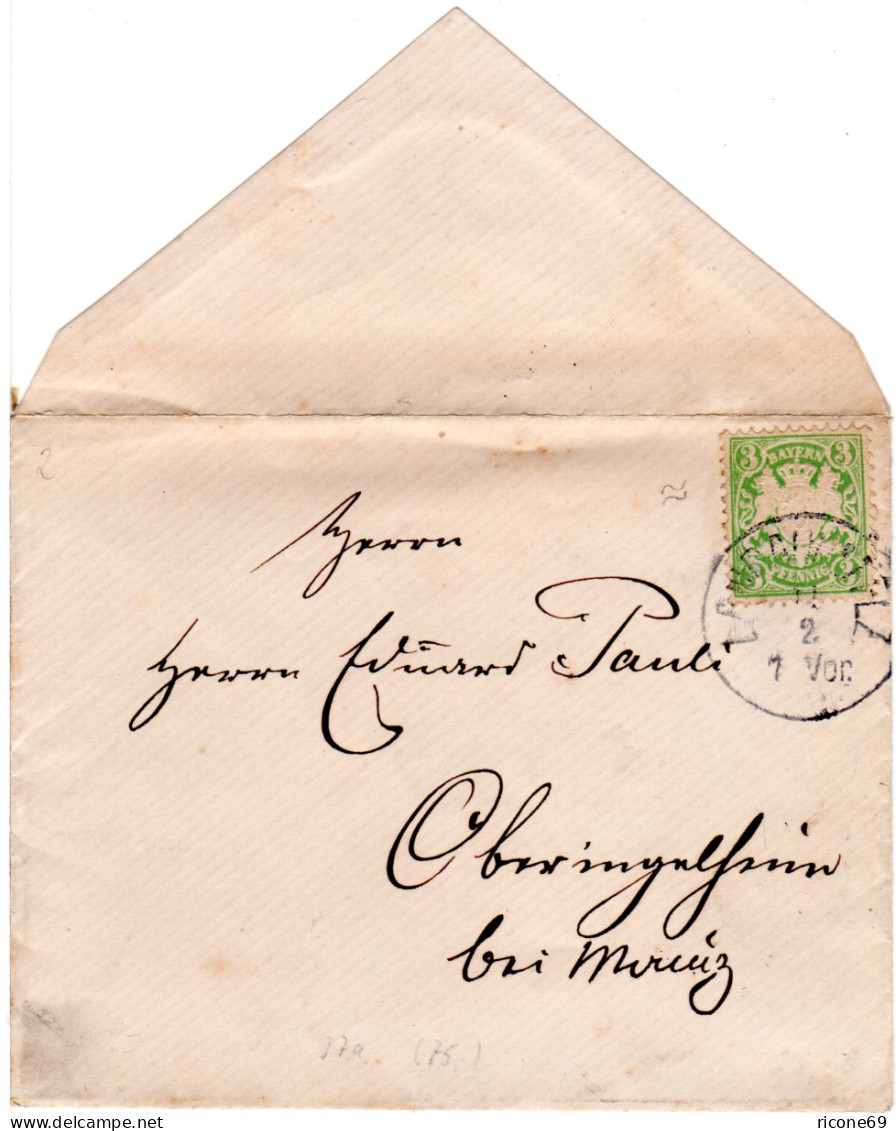 3 BAYERN 3
3 PFENNIG 3
2
11
2
7 Vor.
Herrn
Herrn Eduard Pauli
Oberingelheim
bei Mainz
37a. (75,)
ricone69